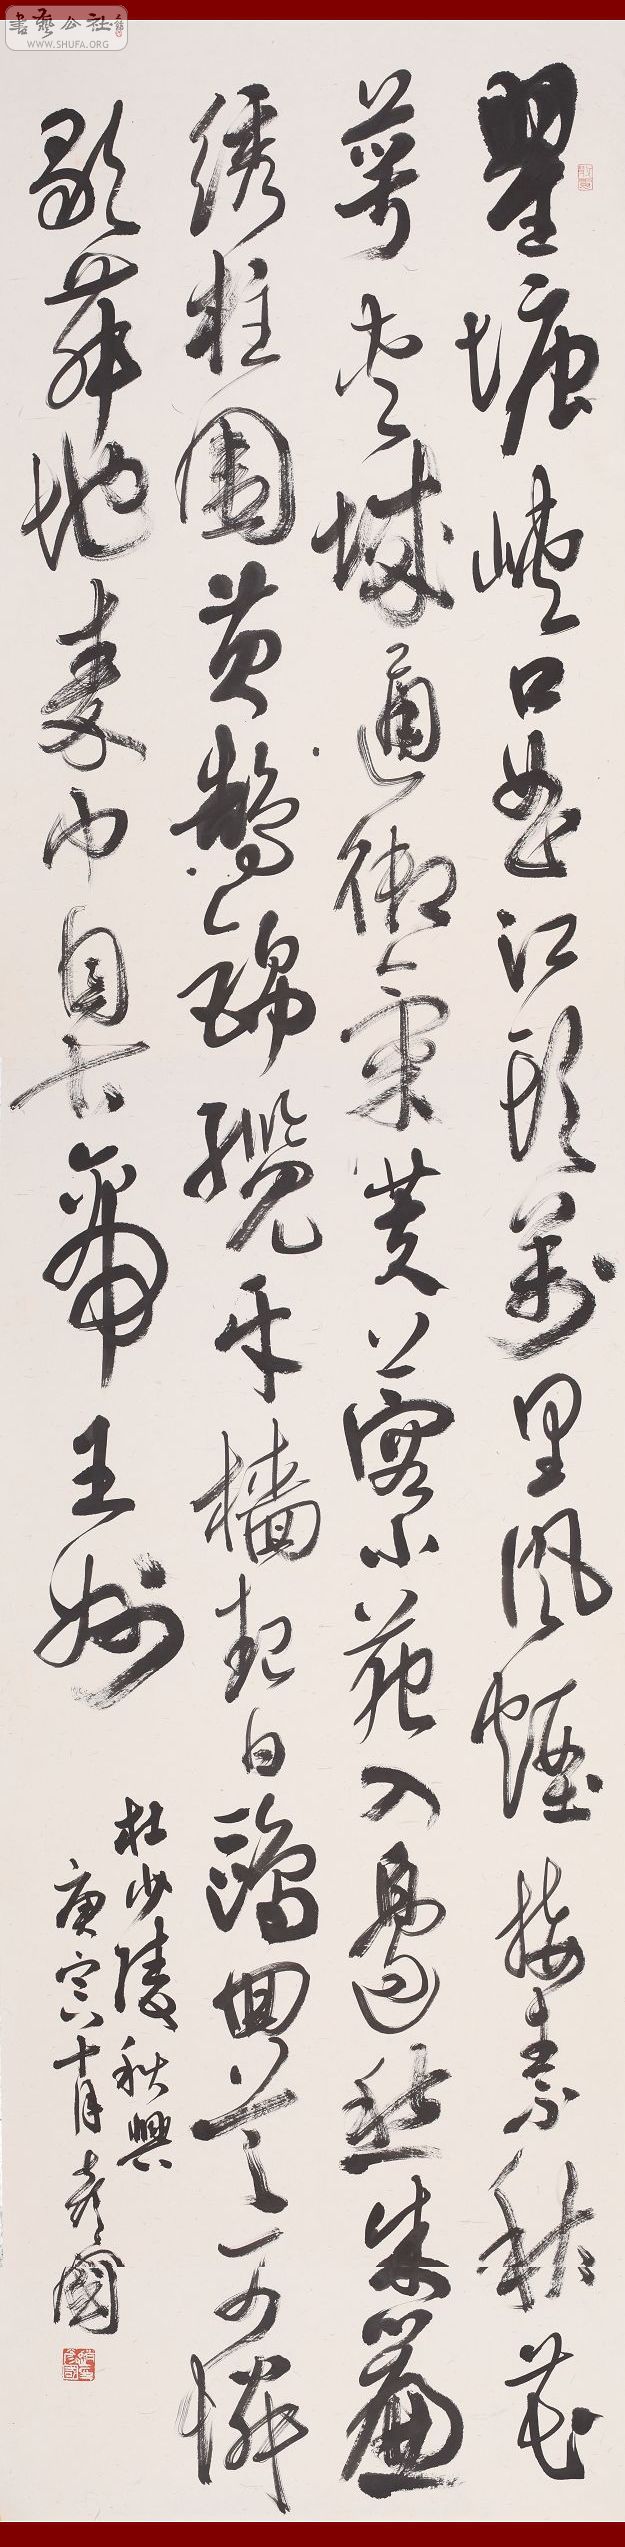 書藝公社
WWW.SHUFA.ORG
瞿塘峽口曲江頭萬里風煙接素秋花
萼夾城通御氣芙蓉小苑入邊愁朱簾
绣柱圍黄鵠錦纜牙檣起白鷗回首可憐
歌舞地秦中自古帝王州
杜少陵秋興
庚寅十月彦國